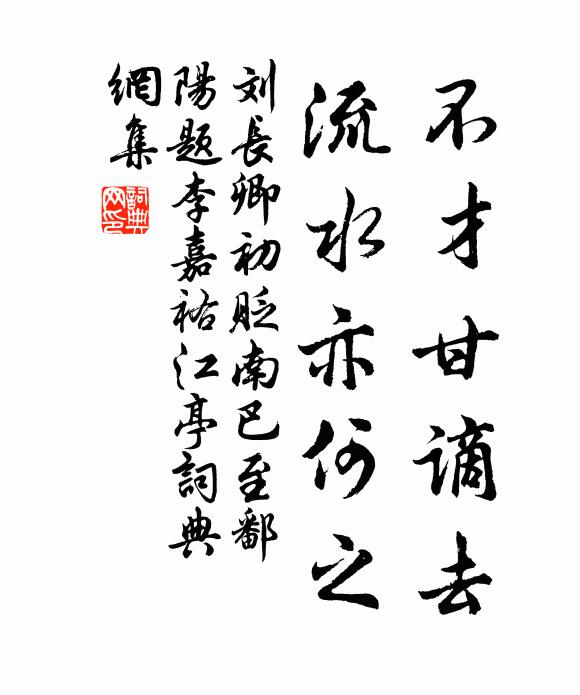 不才甘謫去
流水亦何之
刘長卿初貶南巴至鄱
陽題李嘉祐江亭詞典
網集
詞典
网印